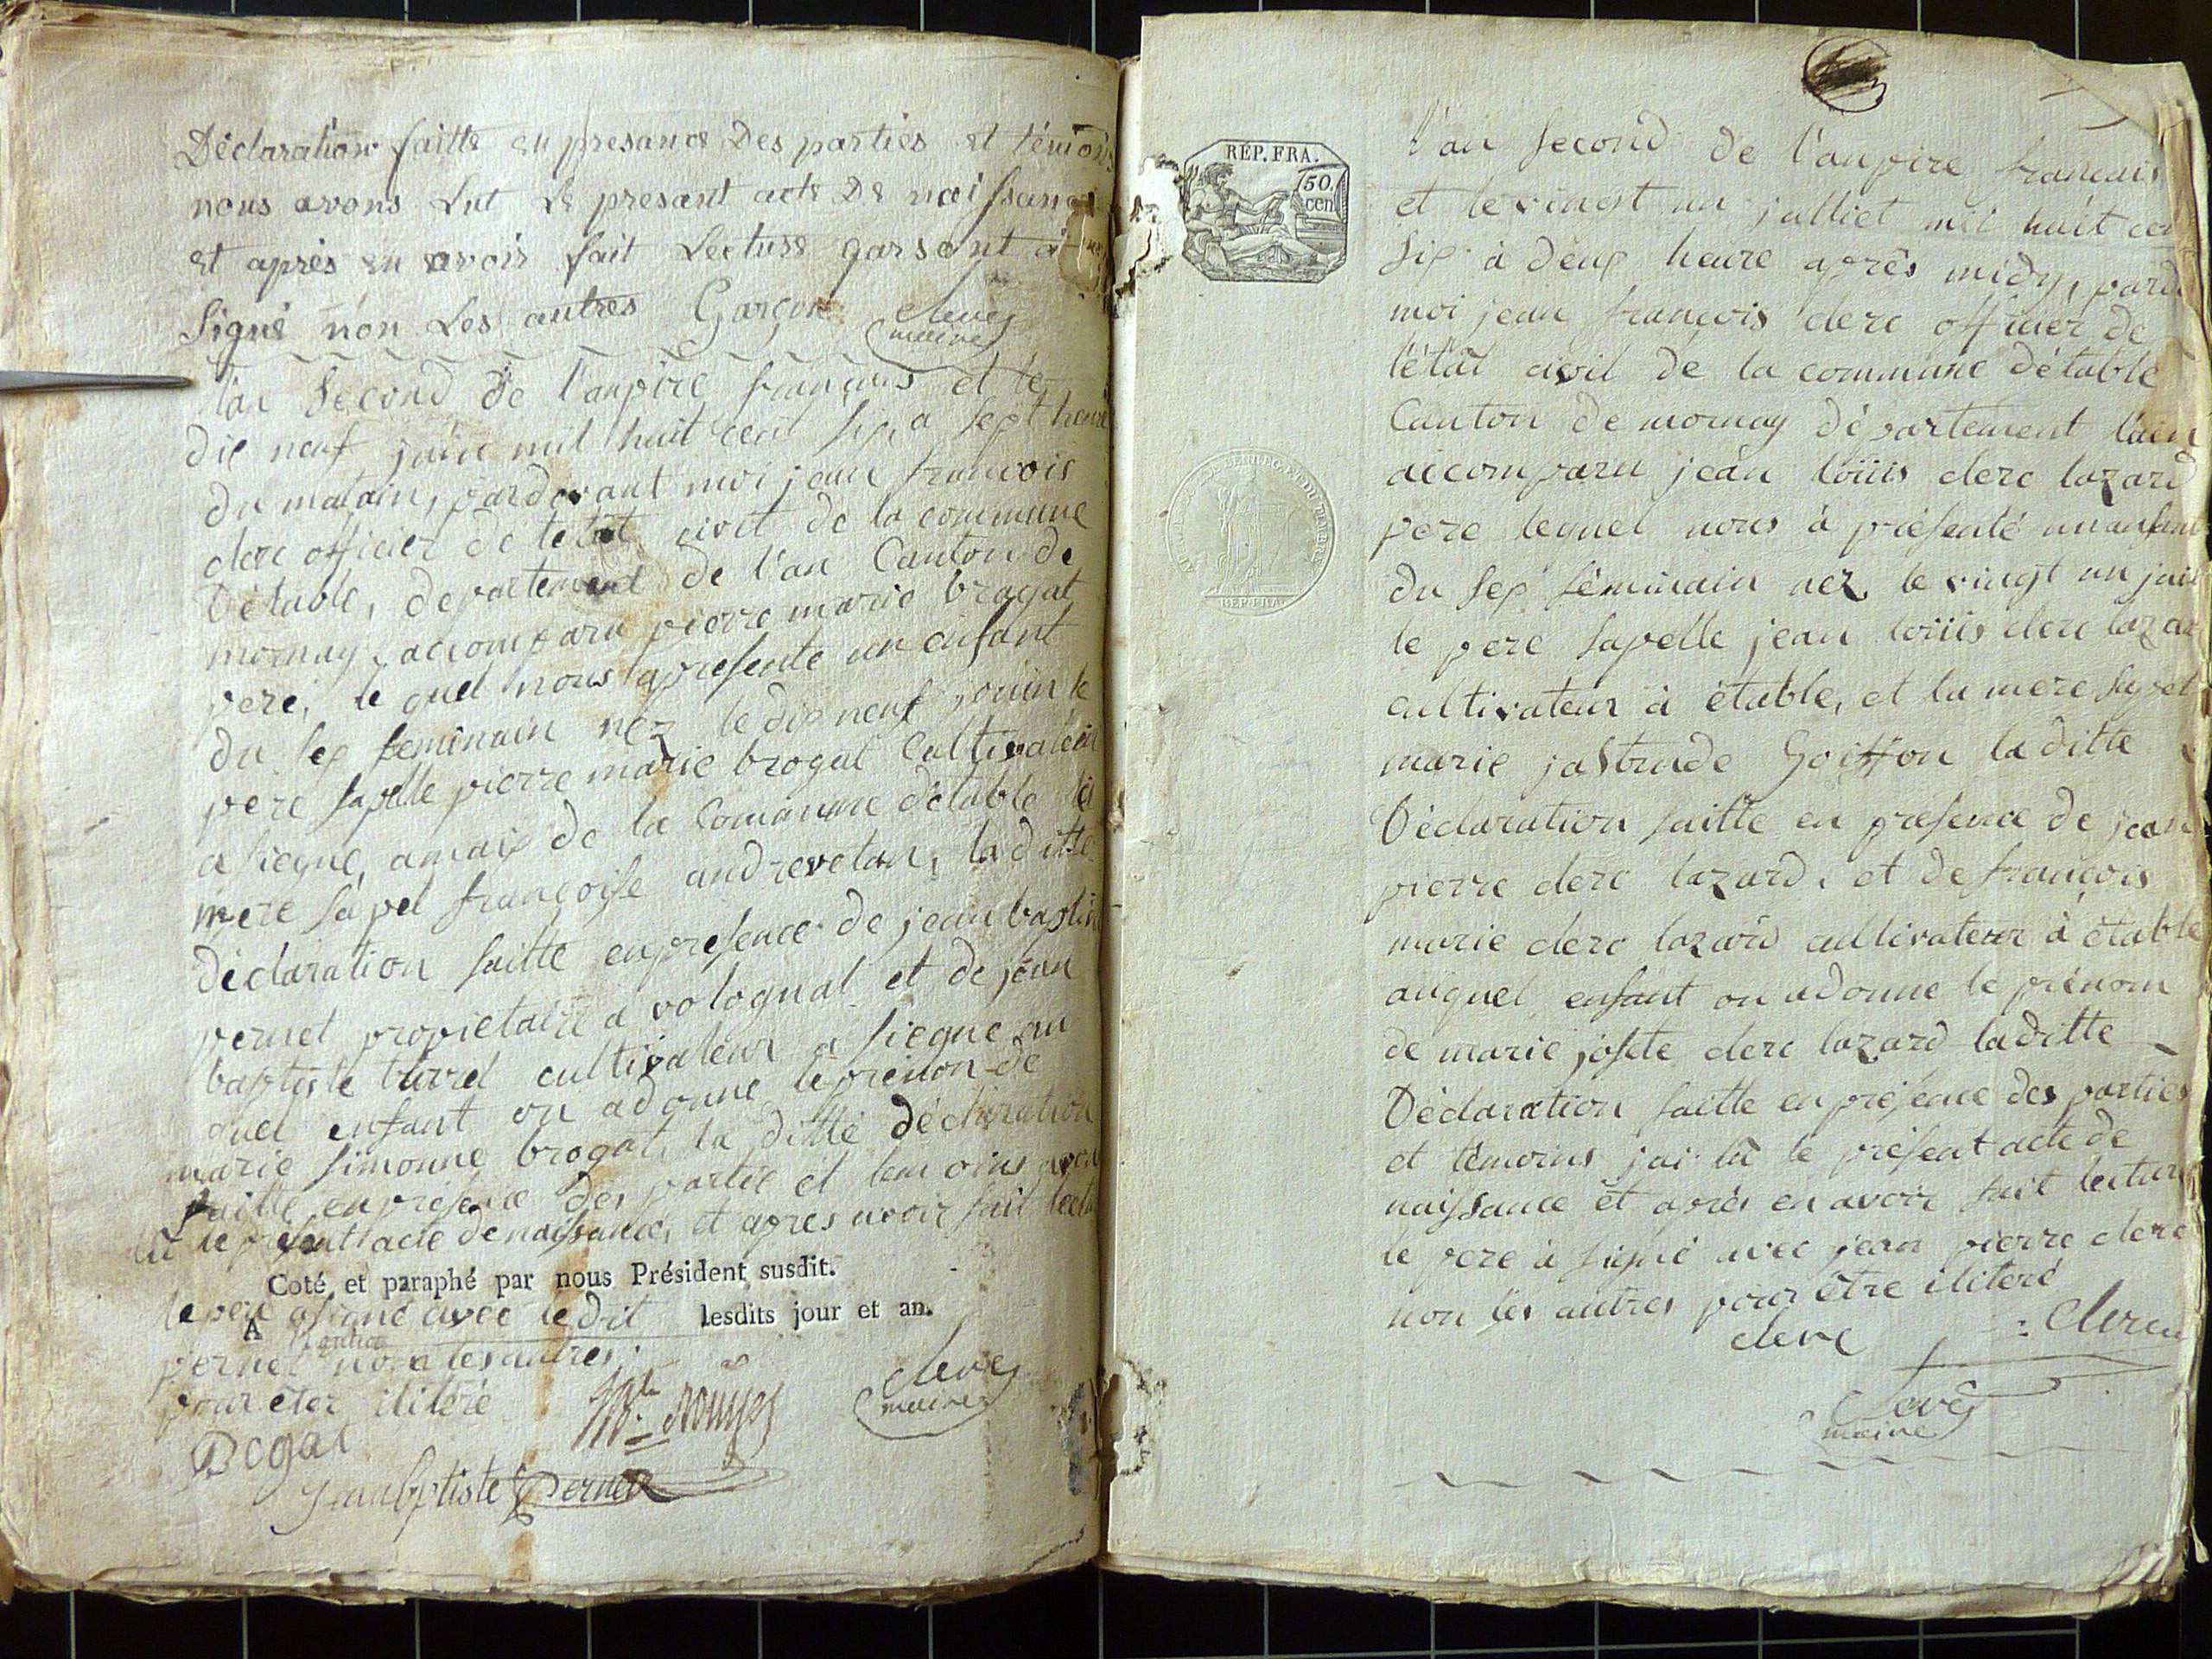 Déclaration faitte en presance Des parties et témoin
nous avons Lut Le presant acte De naissance
et après en avoir fait Lecture garsont à
Signé non Les autres Garçon clerc
maire
l'an Second de l'anpire français et le
dix neuf juin mil huit cent six, a sept heure
du matain, pardevant moi jean francois
clerc officier de letat civil de la commune
Détable, departement de l'an Canton de
mornay, accomparu pierre marie brogat
pere, le quel nous apresente un enfant
du sex feminain néz le dix neuf jouin le
pere sapelle pierre marie brogat Cultivateur
a siegne, amaix de la Commune détable
mere sapel françoise andrevetan, la ditte
déclaration faitte en presence de jean baptiste
pernet propietaire a volognat et de jean
baptiste burrel cultivateur a siegne au
quel enfant on adonné le prenon de
marie simonne brogat, la ditte déclaration
faitte en présence des partie et temoins avons
lû le présent acte de naissance, et apres avoir fait lectu
Coté et paraphé par nous Président susdit.
le pere asigné avec ledit lesdits jour et an.
A Nantua
pernet non les autres.
pour éter iliteré clerc
maire
Bogat
Jean bptiste Pernet
RÉP. FRA.
50.
cen
l'an second de l'anpire francais
et le vingt un julliet mil huit cen
six à deux heure après midy, pard
moi jean françois clerc officier de
létat civil de la commune détable
Canton de mornay département lain
accomparu jean loüis clerc lazard
pere lequel nous à présenté un anfant
du sex féminain nez le vingt un juil
le pere sapelle jean loüis clerc lazar
cultivateur à étable, et la mere sapel
marie jostrude Goiffon laditte
Déclaration faitte en présence de jean
pierre clerc lazard, et de françois
marie clerc lazard cultivateur à étable
auquel enfant on adonne le prénom
de marie josete clerc lazard laditte
Déclaration faitte en présence des parties
et témoins jai lû le présent acte de
naissance et après en avoir fait lectur
le pere à signé avec jean pierre clerc
non les autres pour être iliteré
clerc
REP. FRA.
clerc
maire